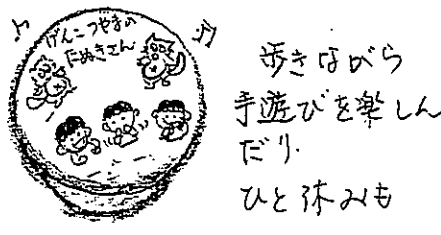 げんこつやまの
たぬきさん
歩きながら
手遊びを楽しん
だり.
ひと休みも